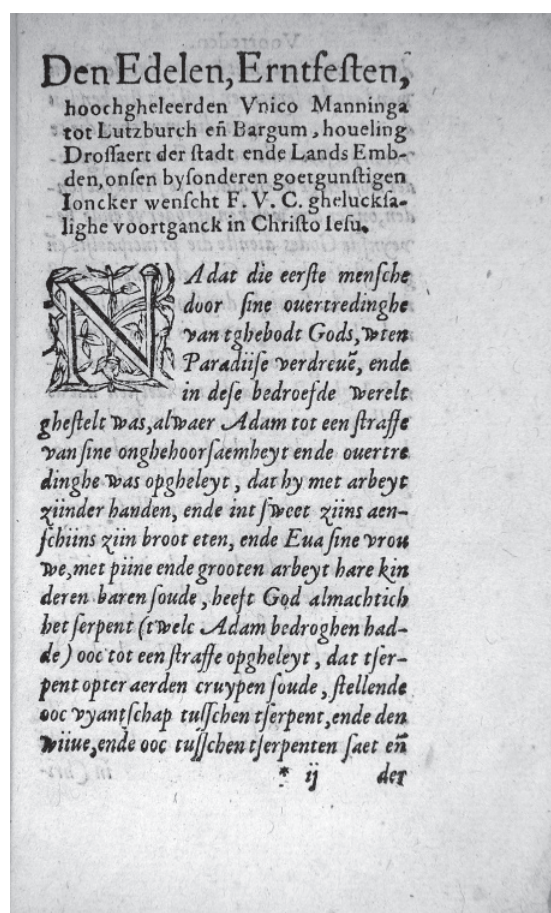 Den Edelen, Erntfeſten,
hoochgheleerden Vnico Manninga
tot Lutzburch en̄ Bargum, houeling
Droſſaert der ſtadt ende Lands Emb-
den, onſen byſonderen goetgunſtigen
Ioncker wenſcht F. V. C. gheluckſa-
lighe voortganck in Chriſto Ieſu.
NA dat die eerſte menſche
door ſine ouertredinghe
van tghebodt Gods, wten
Paradiiſe verdreuē, ende
in deſe bedroefde werelt
gheſtelt was, alwaer Adam tot een ſtraffe
van ſine onghehoorſaemheyt ende ouertre
dinghe was opgheleyt, dat hy met arbeyt
ziinder handen, ende int ſweet ziins aen-
ſchiins ziin broot eten, ende Eua ſine vrou
we, met piine ende grooten arbeyt hare kin
deren baren ſoude, heeft God almachtich
het ſerpent (twelc Adam bedroghen had-
de) ooc tot een ſtraffe opgheleyt, dat tſer-
pent opter aerden cruypen ſoude, ſtellende
ooc vyantſchap tuſſchen tſerpent, ende den
wiiue, ende ooc tuſſchen tſerpenten ſaet en̄
* ij der